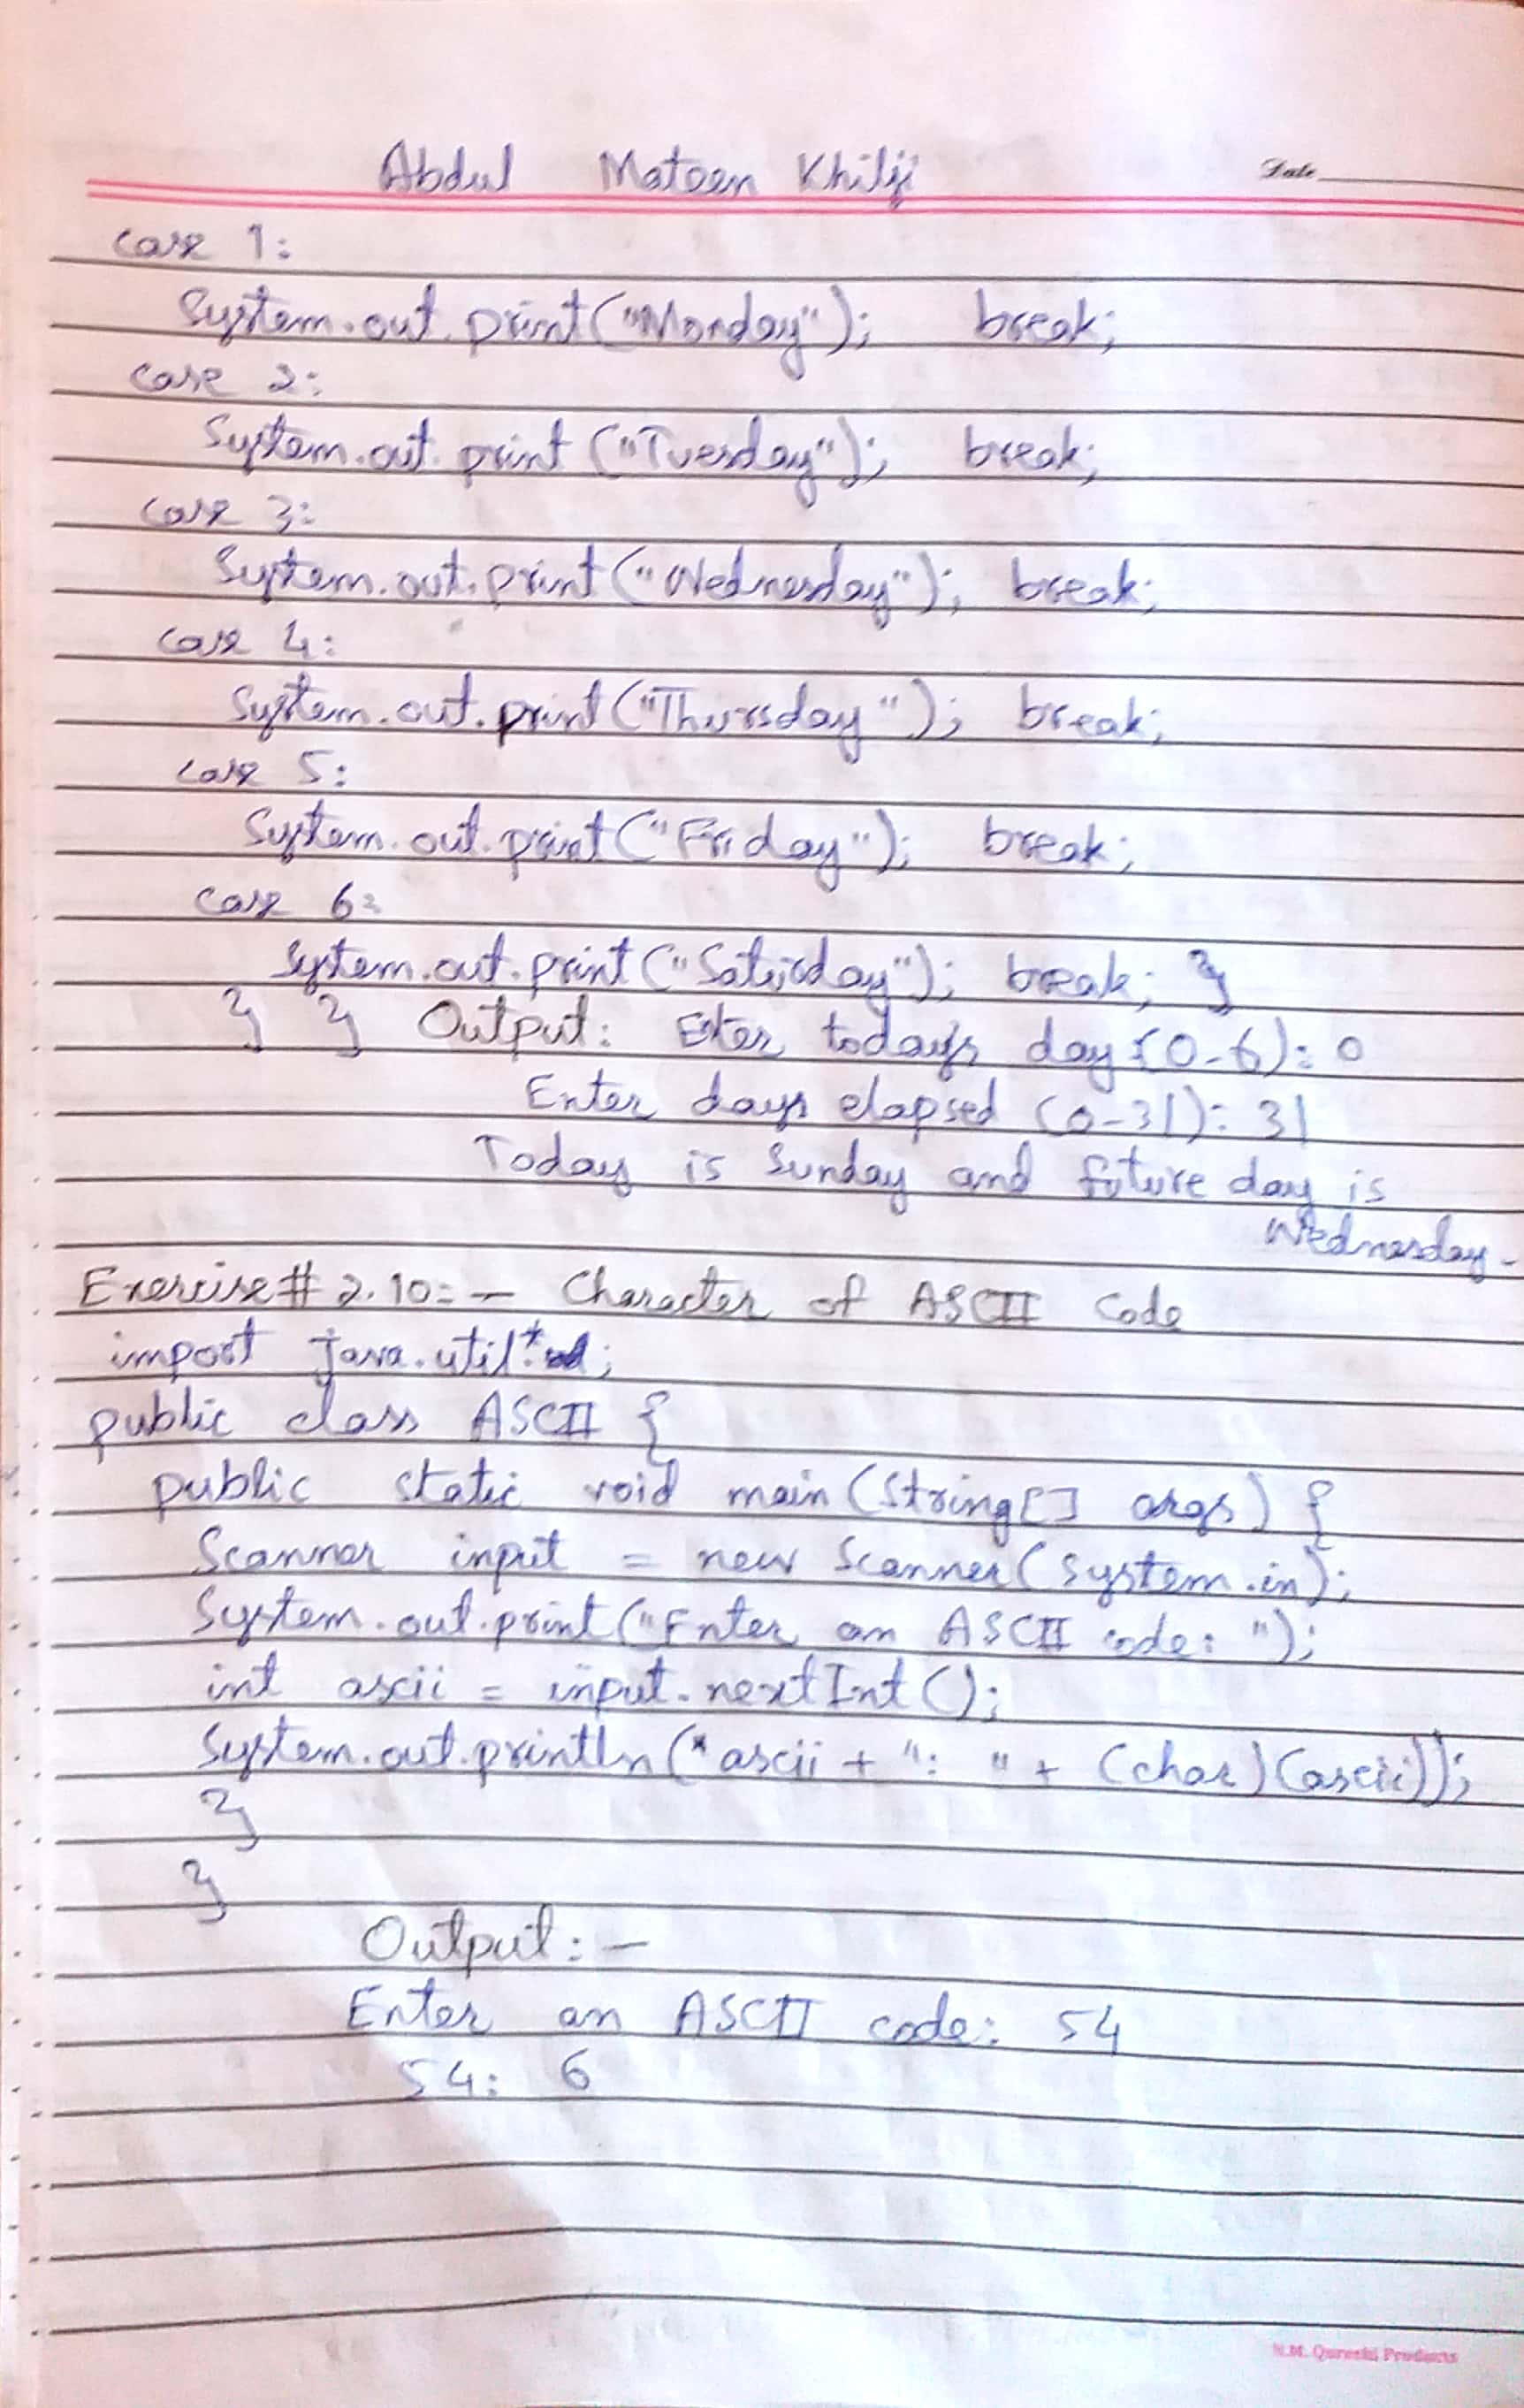 Abdul Mateen Khilji
Date
case 1:
System.out.print("Monday"); break;
case 2:
System.out.print ("Tuesday"); break;
case 3:
System.out.print("Wednesday"); break;
case 4:
System.out.print("Thursday"); break;
case 5:
System.out.print("Friday"); break;
case 6:
System.out.print("Saturday"); break; }
} } Output: Enter today's day:(0-6): 0
Enter days elapsed (0-31): 31
Today is Sunday and future day is
Wednesday.
Exercise# 2.10:- Character of ASCII Code
import java.util.*;
public class ASCII {
public static void main(String[] args) {
Scanner input = new Scanner(System.in);
System.out.print("Enter an ASCII code: ");
int ascii = input.nextInt();
System.out.println("ascii + ": " + (char)(ascii));
}
}
Output:-
Enter an ASCII code: 54
54: 6
N.M. Qureshi Products